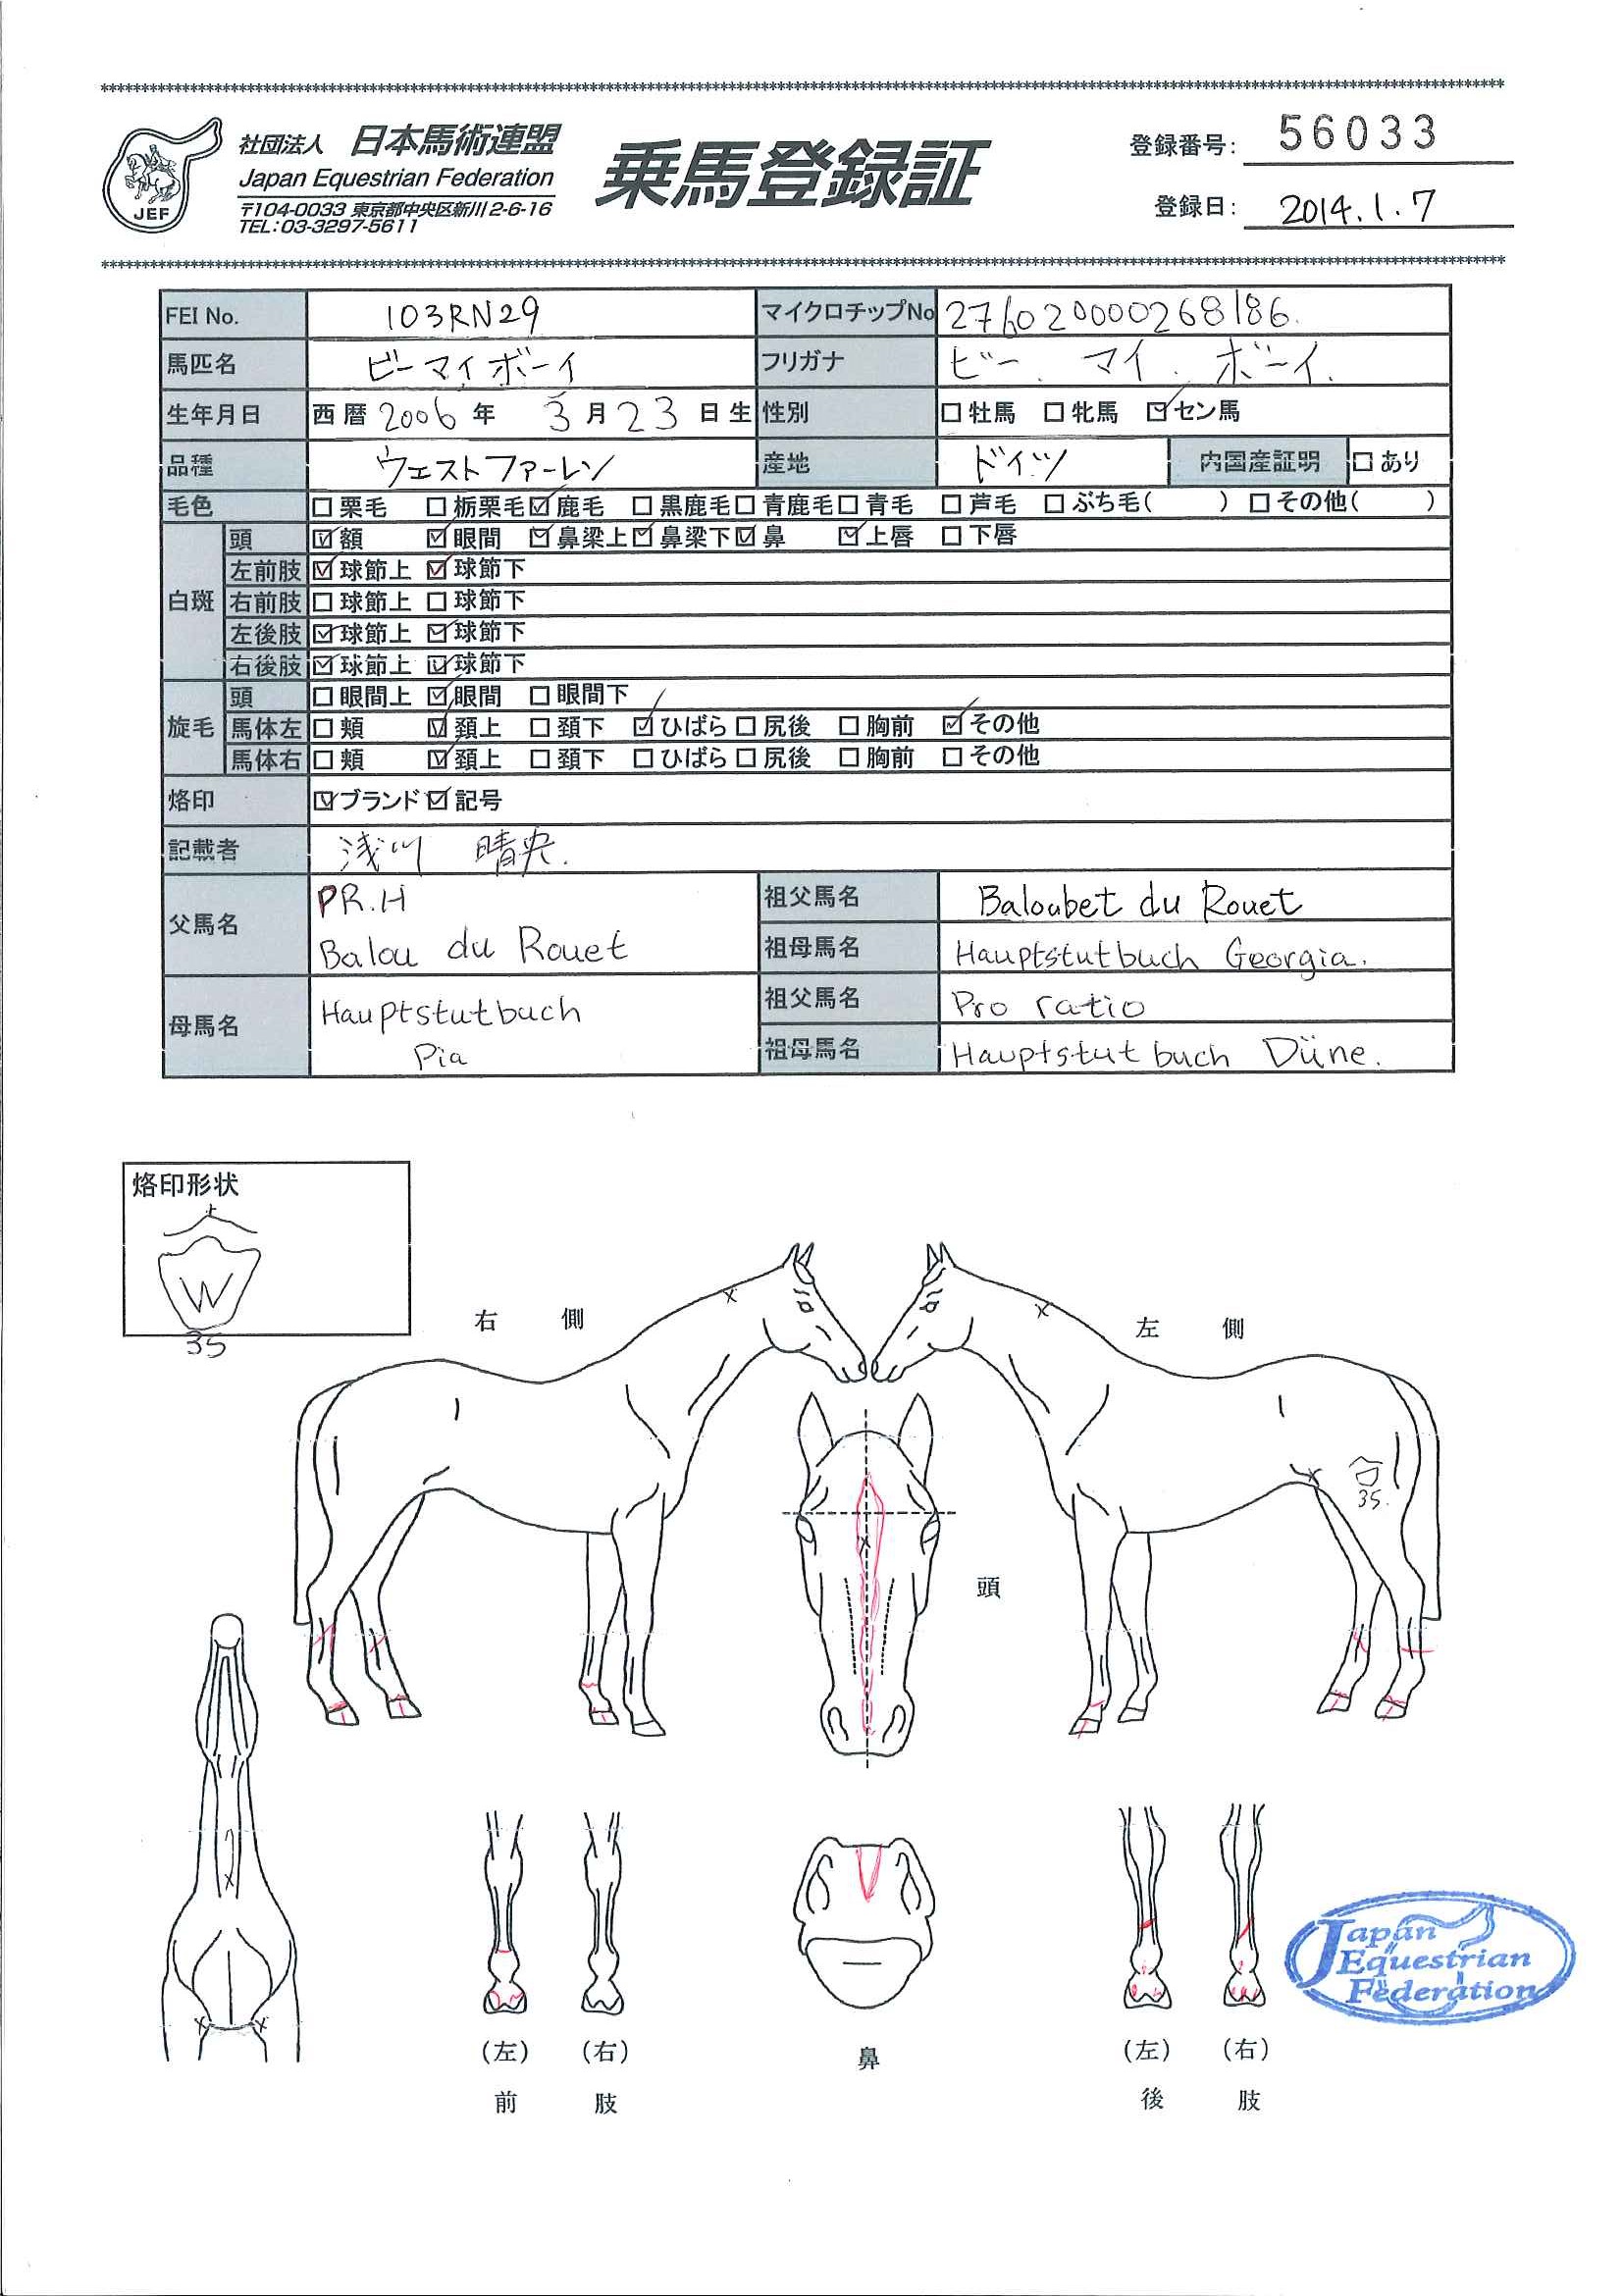 ************************************************************
社団法人 日本馬術連盟
Japan Equestrian Federation
〒104-0033 東京都中央区新川2-6-16
TEL:03-3297-5611
JEF
乗馬登録証
登録番号: 56033
登録日: 2014.1.7
************************************************************
FEI No. 103RN29 マイクロチップNo 276020000268186.
馬匹名 ビーマイボーイ フリガナ ビー.マイ.ボーイ.
生年月日 西暦 2006 年 3 月 23 日生 性別 □牡馬 □牝馬 ☑セン馬
品種 ウェストファーレン 産地 ドイツ 内国産証明 □あり
毛色 □栗毛 □栃栗毛 ☑鹿毛 □黒鹿毛 □青鹿毛 □青毛 □芦毛 □ぶち毛( ) □その他( )
白斑 頭 ☑額 ☑眼間 ☑鼻梁上 ☑鼻梁下 ☑鼻 ☑上唇 □下唇
左前肢 ☑球節上 ☑球節下
右前肢 □球節上 □球節下
左後肢 ☑球節上 ☑球節下
右後肢 ☑球節上 ☑球節下
旋毛 頭 □眼間上 ☑眼間 □眼間下
馬体左 □頬 ☑頚上 □頚下 ☑ひばら □尻後 □胸前 ☑その他
馬体右 □頬 ☑頚上 □頚下 □ひばら □尻後 □胸前 □その他
烙印 ☑ブランド ☑記号
記載者 浅川 晴央.
父馬名 PR.H
Balou du Rouet
祖父馬名 Baloubet du Rouet
祖母馬名 Hauptstutbuch Georgia.
母馬名 Hauptstutbuch
Pia
祖父馬名 Pro ratio
祖母馬名 Hauptstutbuch Düne.
烙印形状
W
35
右側
左側
35.
頭
(左) (右)
前肢
鼻
(左) (右)
後肢
Japan
Equestrian
Federation